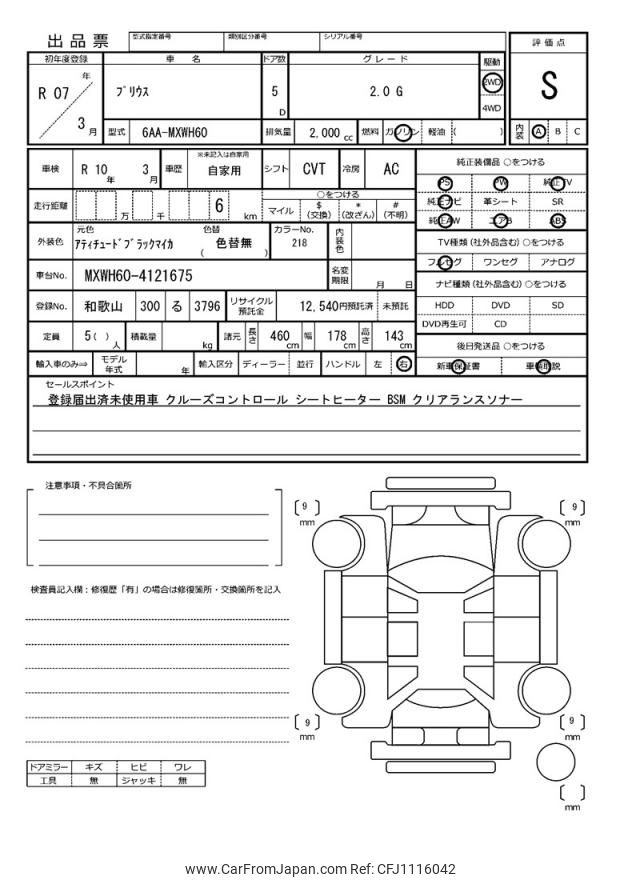 出品票 型式指定番号 類別区分番号 シリアル番号
評価点
S
内装 A B C
初年度登録 車名 ドア数 グレード 駆動
R 07 年 3 月
ﾌﾟﾘｳｽ 5 D 2.0 G 2WD
4WD
型式 6AA-MXWH60 排気量 2,000 cc 燃料 ガソリン 軽油 ( )
車検 R 10 年 3 月 車歴 ※未記入は自家用 自家用 シフト CVT 冷房 AC
純正装備品 ○をつける
PS PW 純正TV
純正ナビ 革シート SR
純正AW エアB ABS
走行距離 万 千 6 km
○をつける
マイル $(交換) *(改ざん) #(不明)
TV種類(社外品含む) ○をつける
フルセグ ワンセグ アナログ
外装色 元色 ｱﾃｨﾁｭｰﾄﾞﾌﾞﾗｯｸﾏｲｶ 色替 ( 色替無 ) カラーNo. 218 内装色
車台No. MXWH60-4121675 名変期限 月 日
ナビ種類(社外品含む) ○をつける
HDD DVD SD
DVD再生可 CD
登録No. 和歌山 300 る 3796 リサイクル預託金 12,540円預託済 未預託
定員 5( ) 人 積載量 kg 諸元 長さ 460 cm 幅 178 cm 高さ 143 cm
後日発送品 ○をつける
新車保証書 車輌取説
輸入車のみ⇒ モデル年式 年 輸入区分 ディーラー 並行 ハンドル 左 右
セールスポイント
登録届出済未使用車 クルーズコントロール シートヒーター BSM クリアランスソナー
注意事項・不具合箇所
検査員記入欄：修復歴「有」の場合は修復箇所・交換箇所を記入
[ 9 ] mm
[ 9 ] mm
[ 9 ] mm
[ 9 ] mm
[ ] mm
ドアミラー キズ ヒビ ワレ
工具 無 ジャッキ 無
www.CarFromJapan.com Ref: CFJ1116042